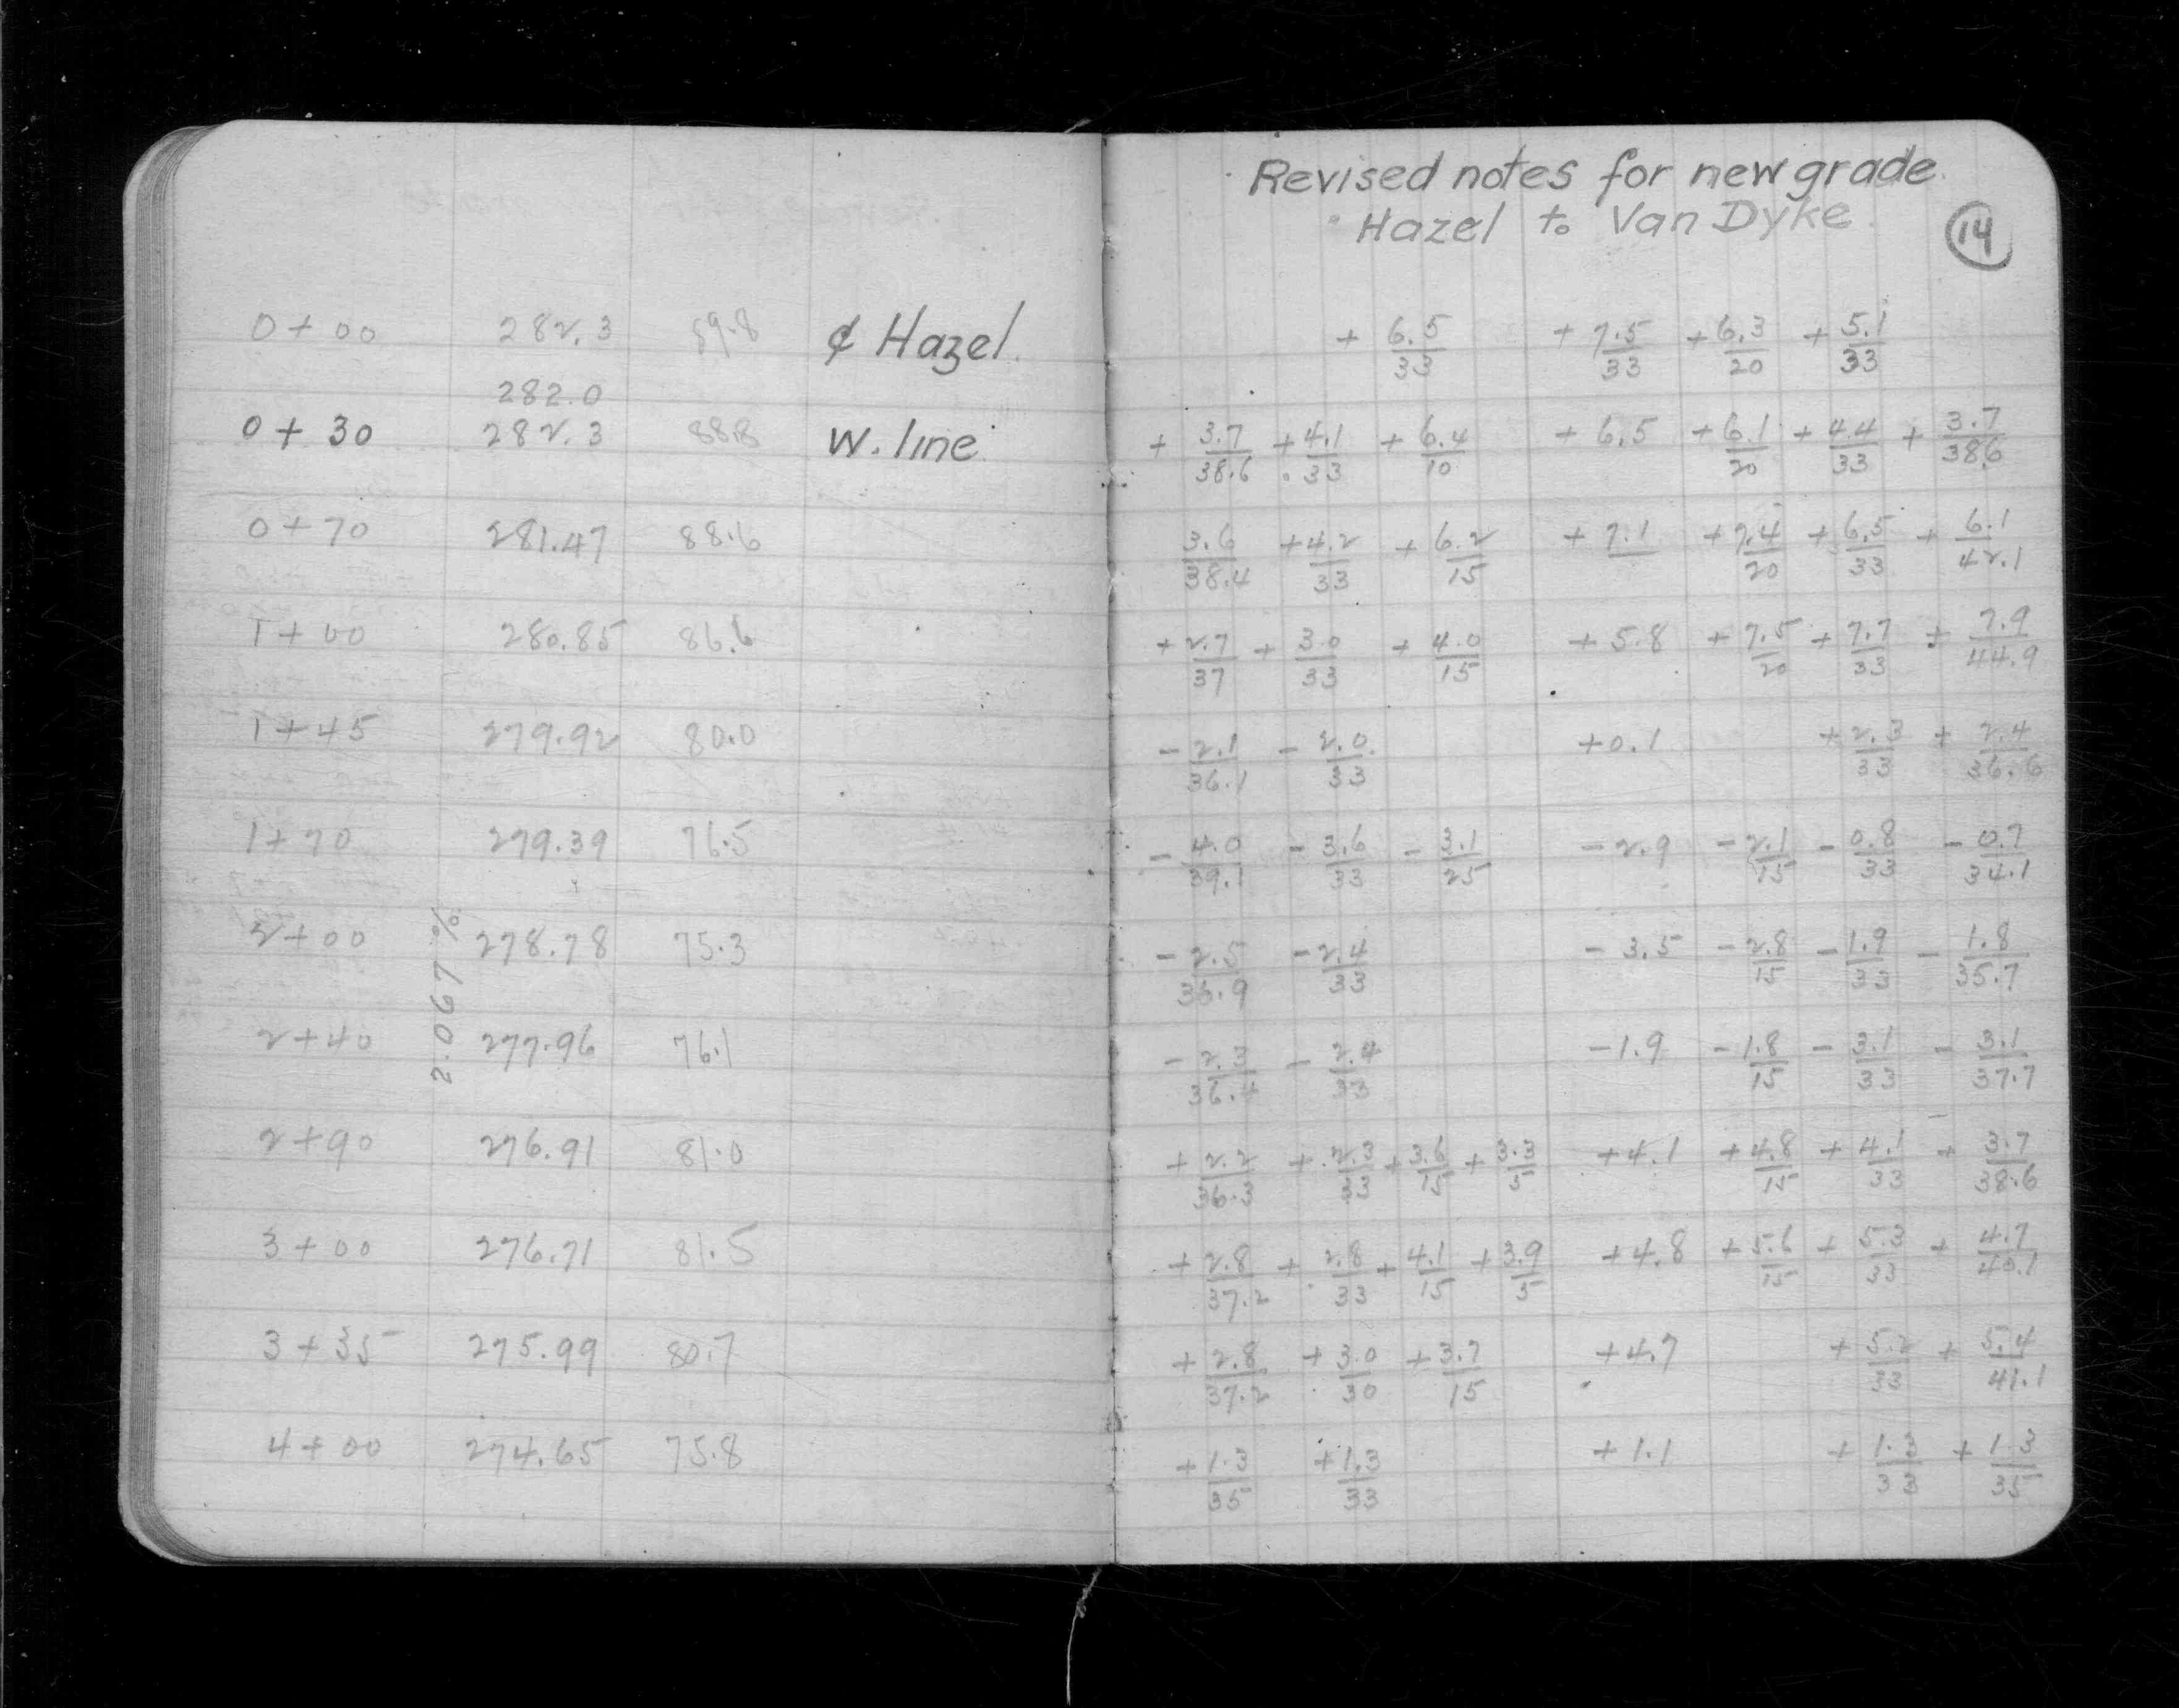 Revised notes for new grade
Hazel to Van Dyke
14
0+00 282.3 89.8 ₵ Hazel + 6.5/33 + 7.5/33 + 6.3/20 + 5.1/33
282.0
0+30 282.3 88.8 W. line + 3.7/38.6 + 4.1/33 + 6.4/10 + 6.5 + 6.1/20 + 4.4/33 + 3.7/38.6
0+70 281.47 88.6 3.6/38.4 + 4.2/33 + 6.2/15 + 7.1 + 7.4/20 + 6.5/33 + 6.1/42.1
1+00 280.85 86.6 + 2.7/37 + 3.0/33 + 4.0/15 + 5.8 + 7.5/20 + 7.7/33 + 7.9/44.9
1+45 279.92 80.0 - 2.1/36.1 - 2.0/33 +0.1 + 2.3/33 + 2.4/36.6
1+70 279.39 76.5 - 4.0/39.1 - 3.6/33 - 3.1/25 - 2.9 - 2.1/15 - 0.8/33 - 0.7/34.1
2+00 278.78 75.3 - 2.5/36.9 - 2.4/33 - 3.5 - 2.8/15 - 1.9/33 - 1.8/35.7
2.067 %
2+40 277.96 76.1 - 2.3/36.4 - 2.4/33 - 1.9 - 1.8/15 - 3.1/33 - 3.1/37.7
2+90 276.91 81.0 + 2.2/36.3 + 2.3/33 + 3.6/15 + 3.3/5 + 4.1 + 4.8/15 + 4.1/33 + 3.7/38.6
3+00 276.71 81.5 + 2.8/37.2 + 2.8/33 + 4.1/15 + 3.9/5 + 4.8 + 5.6/15 + 5.3/33 + 4.7/40.1
3+35 275.99 80.7 + 2.8/37.2 + 3.0/30 + 3.7/15 + 4.7 + 5.2/33 + 5.4/41.1
4+00 274.65 75.8 + 1.3/35 + 1.3/33 + 1.1 + 1.3/33 + 1.3/35